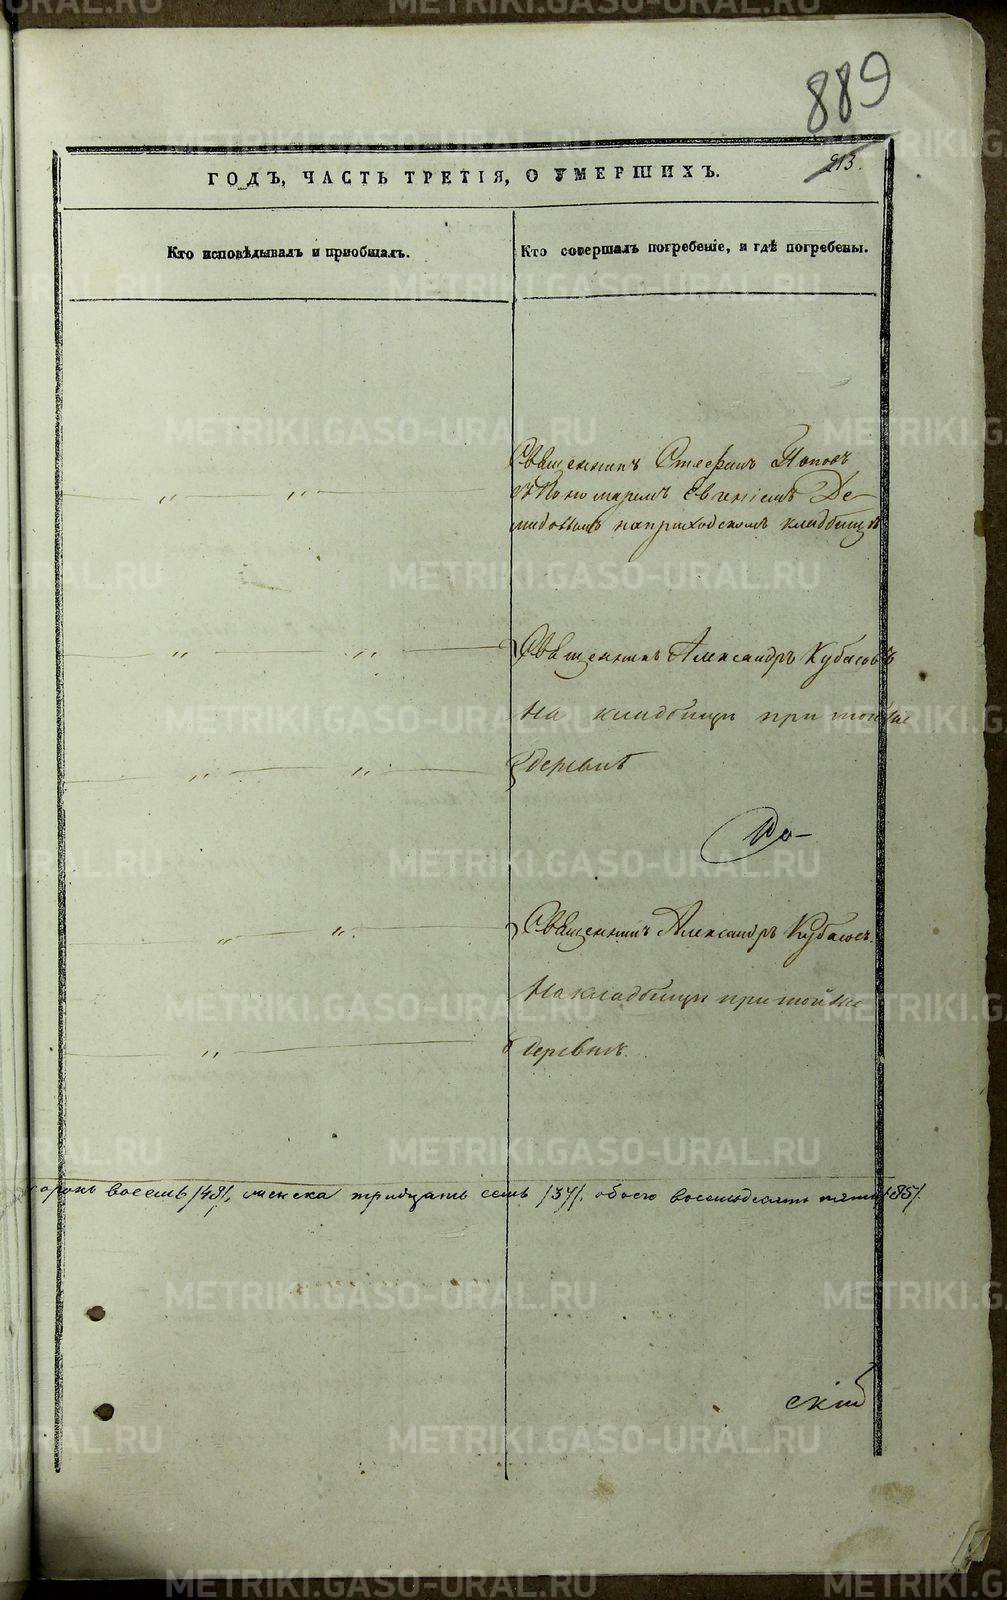 889
213.
ГОДЪ, ЧАСТЬ ТРЕТІЯ, О УМЕРШИХЪ.
Кто исповѣдывалъ и пріобщалъ.
Кто совершалъ погребеніе, и гдѣ погребены.
Священникъ Стефанъ Поповъ
съ Пономаремъ Евгеніемъ Де-
мидовымъ на приходскомъ кладбищѣ
Священникъ Александръ Кубасовъ
на кладбищѣ при той же
деревнѣ
По-
Священникъ Александръ Кубасовъ.
На кладбищѣ при той же
деревнѣ.
сорокъ восемь /48/, женска тридцать семь /37/, обоего восемьдесятъ пять /85/.
скій
METRIKI.GASO-URAL.RU